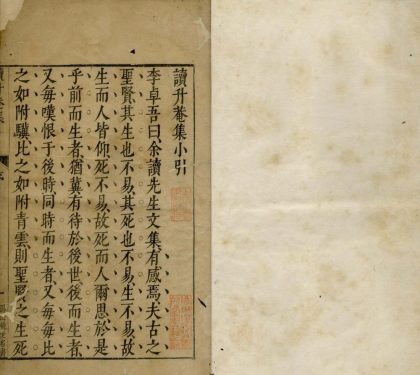 讀升菴集小引
李卓吾曰余讀先生文集有感焉夫古之
聖賢其生也不易其死也不易生不易故
生而人皆仰死不易故死而人爾思於是
乎前而生者猶冀有待於後世後而生者
又每嘆恨于後時同時而生者又每每比
之如附驥比之如附青雲則聖賢之生死